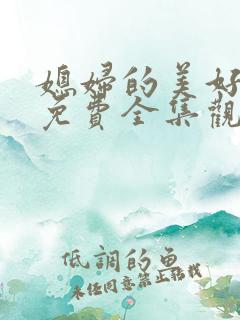 媳婦的美好
免費全集觀
低調的魚
未經同意禁止轉載